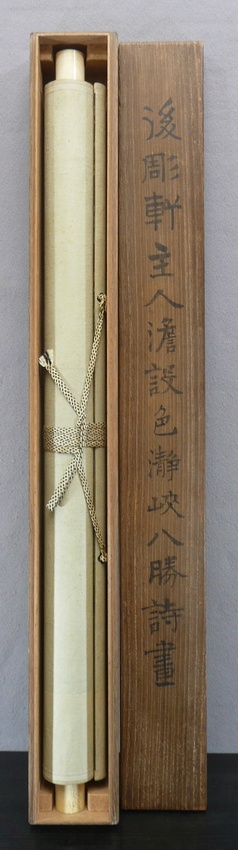 後彫軒主人澹設色瀞峽八勝詩畫